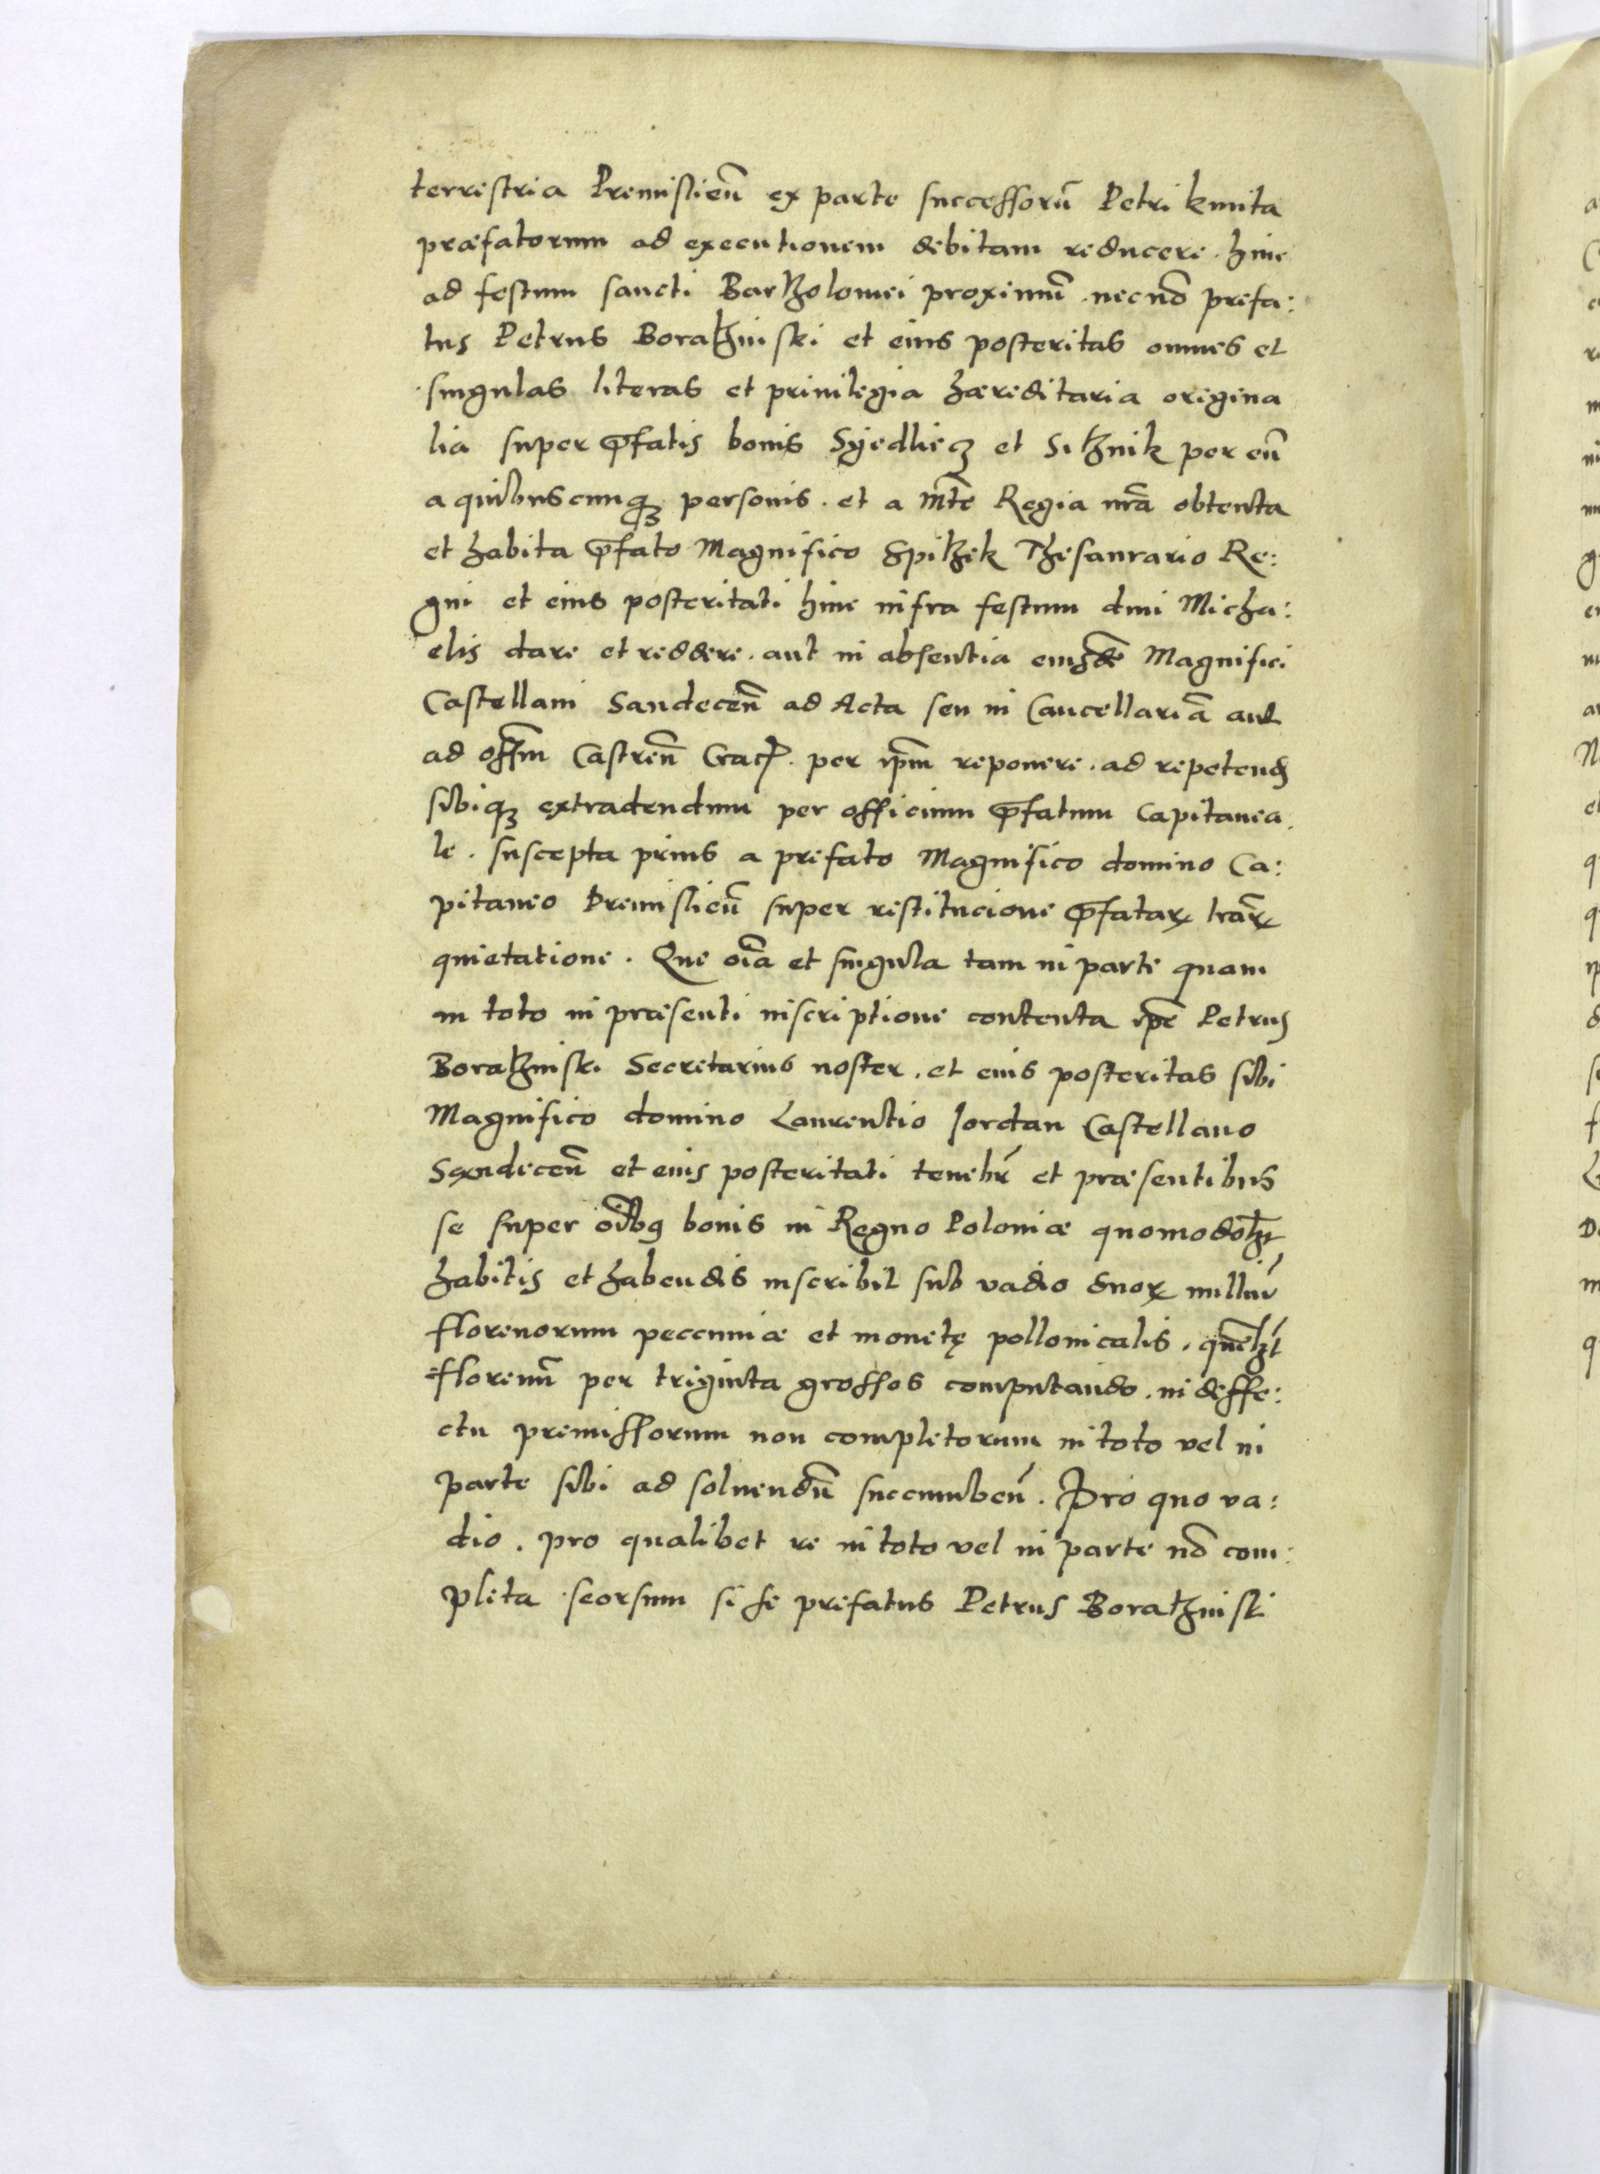 terrestria Premislieñ ex parte successorũ Petri kmita
præfatorum ad executionem debitam reducere . hinc
ad festum sancti Bartholomei proximũ . nec nõ prefa:
tus Petrus Boratzinski et eius posteritas omnes et
singulas literas et privilegia hæreditaria origina
lia super p̄fatis bonis Syedliecz et Sitznik per eũ
a quibuscunqꝫ personis . et a Mte Regia nr̃a obtenta
et habita p̄fato Magnifico Spitzek Thesaurario Re:
gni et eius posteritati hinc infra festum divi Micha:
elis dare et reddere . aut in absentia eiusdẽ Magnifici
Castellani Sandeceñ ad Acta seu in Cancellariã aut
ad offm̃ Castreñ Crac̃ . per ip̃m reponere . ad repetend̃
sibiqꝫ extradendum per officium p̄fatum Capitanea
le . suscepta prius a prefato Magnifico domino Ca:
pitaneo Premislieñ super restitucione p̄fatarꝝ l̃rarꝝ
quietatione . Que oĩa et singula tam in parte quam
in toto in præsenti inscriptione contenta ip̃e Petrus
Boratzinski Secretarius noster . et eius posteritas sibi
Magnifico domino Laurentio Jordan Castellano
Sandeceñ et eius posteritati tenebr̃ et præsentibus
se super oĩbꝯ bonis in Regno Poloniæ quomodolꝫt
habitis et habendis inscribit sub vadio duorꝝ milliũ
florenorum peccuniæ et monetę pollonicalis . quẽlꝫt
florenũ per triginta grossos computando . in deffe:
ctu premissorum non completorum in toto vel in
parte sibi ad solvendũ succumbeñ . Pro quo va:
dio . pro qualibet re in toto vel in parte nõ com:
pleta seorsum si se prefatus Petrus Boratzinski